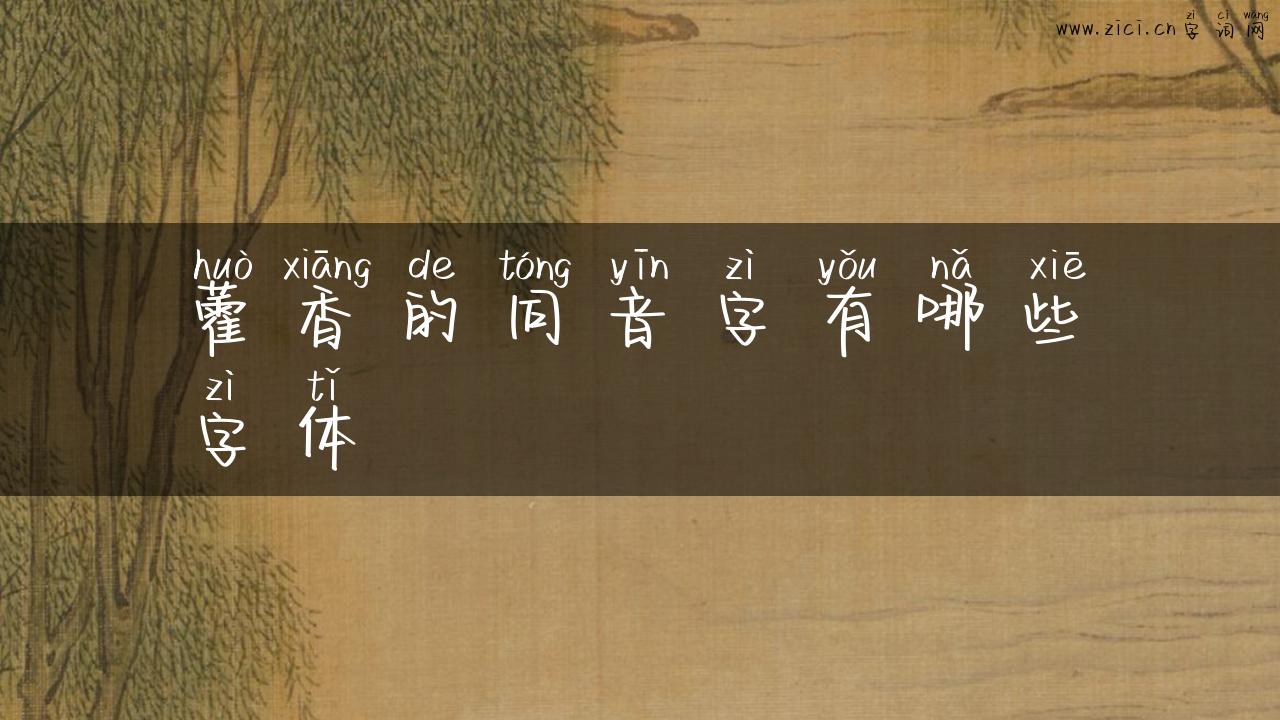 zì cí wǎng
www.zici.cn 字词网
huò xiāng de tóng yīn zì yǒu nǎ xiē
藿香的同音字有哪些
zì tǐ
字体